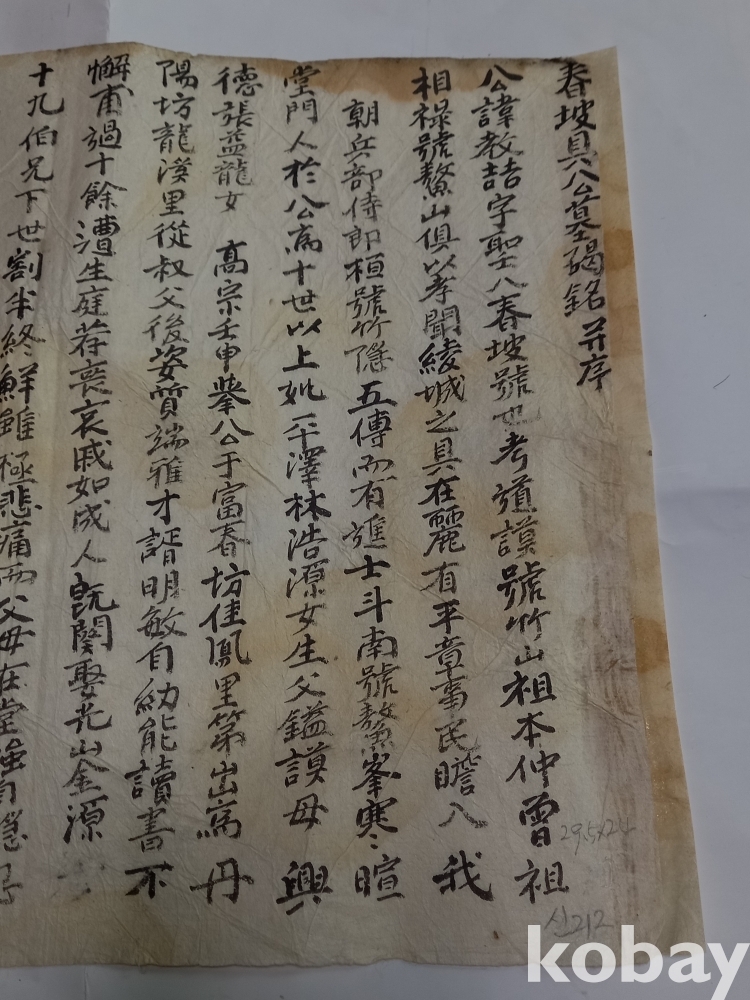 春坡具公墓碣銘 并序
公諱教喆字聖八春坡號也考道謨號竹山祖本仲曾祖
相祿號鰲山俱以孝聞綾城之具在麗有平章事民瞻入我
朝兵部侍郎楨號竹隱五傳而有進士斗南號鰲峯寒暄
堂門人於公爲十世以上妣平澤林浩源女生父鎰謨母興
德張益龍女 高宗壬申擧公于富春坊佳鳳里第出爲丹
陽坊龍溪里從叔父後姿質端雅才諝明敏自幼能讀書不
懈甫過十餘遭生庭荐喪哀戚如成人既闋娶光山金源
十九伯兄下世割半終鮮雖極悲痛而父母在堂強自
29.5x24
신212
kobay